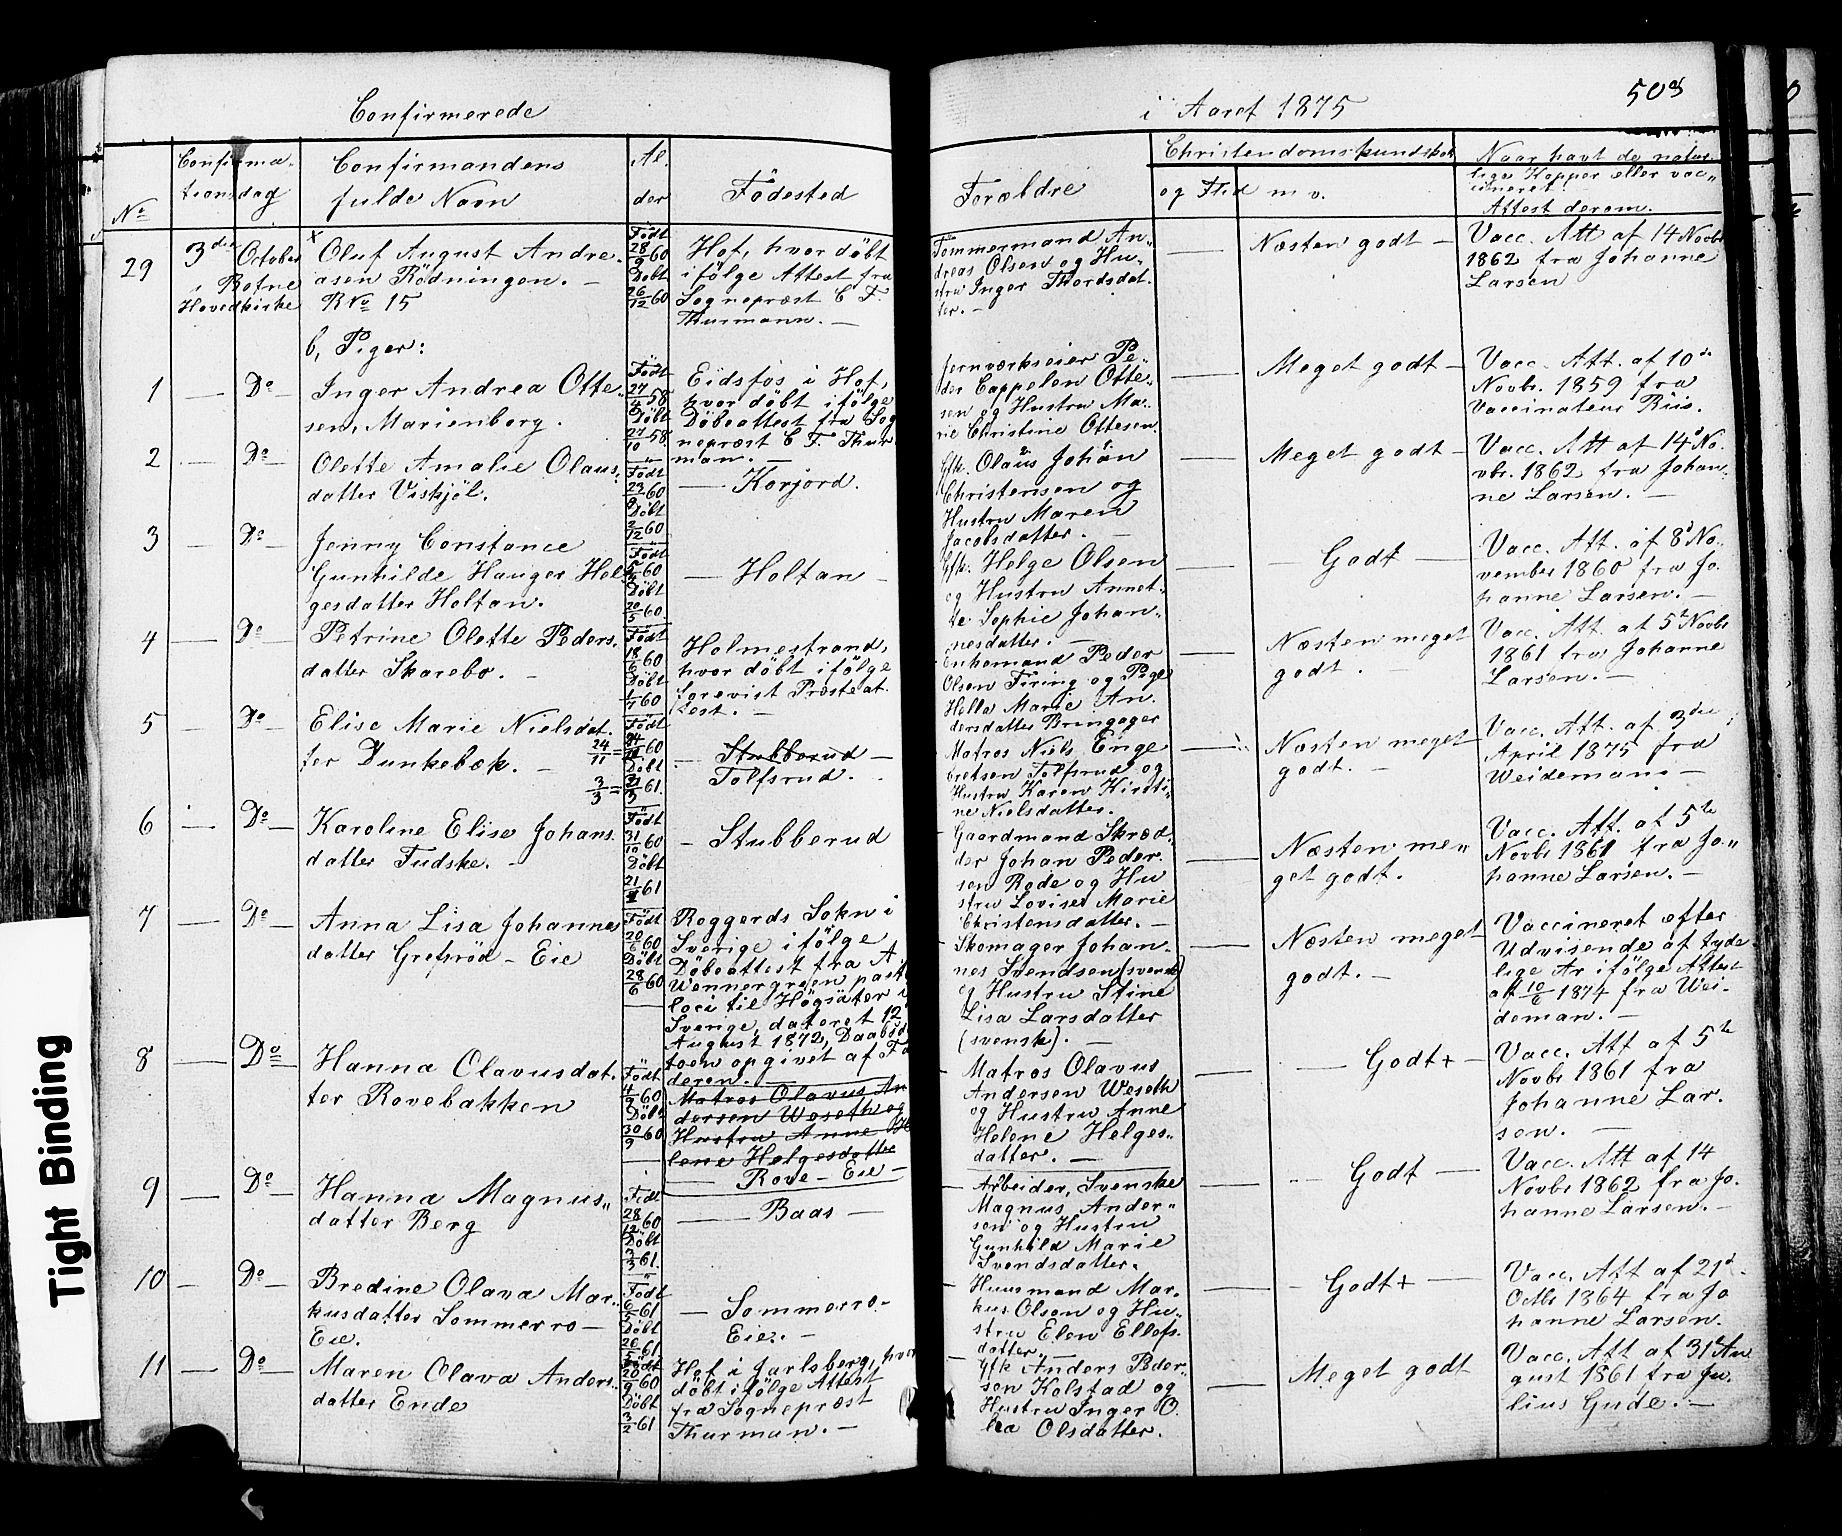 Confirmerede
i Aaret 1875
503
No
Confirma-
tionsdag
Confirmandens
fulde Navn
Al-
der
Födested
Forældre
Christendomskundskab
og Flid m. v.
Naar havt de natur-
lige Kopper eller vac-
cineret.
Attest derom.
29
3die October
i Botne
Hovedkirke
x
Oluf August Andre-
asen Rödningen. —
R No 15
Födt
28/9 60
Döbt
26/12 60
Hof, hvor döbt
ifölge Attest fra
Sognepræst C F.
Thurmann. —
Tömmermand An-
dreas Olsen og Hu-
stru Inger Thordsdat-
ter. —
— Næsten godt —
Vacc. Att af 14 Novbr
1862 fra Johanne
Larsen
b, Piger:
1 — Do —
Inger Andrea Otte-
sen, Marienborg.
Födt
27/4 58
Döbt
27/10 58
Eidsfos i Hof,
hvor döbt ifölge
Döbeattest fra Sog
nepræst C F. Thur
man. —
Jernværkseier Pe-
der Cappelen Otte-
sen og Hustru Ma-
rie Christine Ottesen.
— Meget godt —
Vacc. Att. af 10de
Novbr. 1859 fra
Vaccinateur Riis.
2 — Do —
Olette Amalie Olaus-
datter Viskjöl.
Födt
23/9 60
Döbt
2/12 60
— Korjord.
Gfk. Olaus Johan
Christensen og
Hustru Maren
Jacobsdatter. —
— Meget godt —
Vacc. Att af 14d No-
vbr. 1862 fra Johan-
ne Larsen. —
3 — Do —
Jenny Constance
Gunhilde Hauger Hel-
gesdatter Holtan.
Födt
5/4 60
Döbt
20/5 60
— Holtan —
Gfk. Helge Olsen
og Hustru Annet-
te Sophie Johan-
nesdatter. —
— Godt —
Vacc. Att. af 8d No-
vember 1860 fra Jo-
hanne Larsen. —
4 — Do —
Petrine Olette Peders-
datter Skarebo. —
Födt
18/6 60
Döbt
1/7 60
Holmestrand,
hvor döbt ifölge
forevist Præsteat-
test. —
Enkemand Peder
Olsen Firing og Pige
Helle Marie An-
dersdatter Bringager
— Næsten meget
godt. —
Vacc. Att. af 5te Novbr
1861 fra Johanne
Larsen. —
5 — Do —
Elise Marie Nielsdat-
ter Dunkebæk. —
24/11 =
3/3 =
Födt
60
Döbt
61.
— Stubberud —
Tolfsrud.
Matros Niels Enge
bretsen Tolfsrud og
Hustru Karen Kirsti-
ne Nielsdatter.
— Næsten meget
godt. —
Vacc. Att. af 3die
April 1875 fra
Weideman. —
6 — Do —
Karoline Elise Johans-
datter Tudske. —
Födt
31/10 60
Döbt
21/1 61
— Stubberud
Gaardmand Skræd-
der Johan Peder-
sen Rode og Hu
stru Lovise Marie
Christensdatter. —
— Næsten me-
get godt.
Vacc. Att. af 5te
Novbr 1861 fra Jo-
hanne Larsen. —
7 — Do —
Anna Lisa Johannes
datter Grefsröd - Eie
Födt
20/6 60
Döbt
28/6 60
Roggerds Sokn i
Sverige ifölge
Döbeattest fra A.
Wennergreen past.
loci til Högsäter i
Sverige, dateret 12
August 1872, Daabsda
toen opgivet af Fa
deren. —
Skomager Johan-
nes Svendsen (svensk)
og Hustru Stine
Lisa Larsdatter
(svensk). —
— Næsten meget
godt. —
Vaccineret efter
Udvisende af tyde-
lige Ar ifölge Attest
af 10/6 1874 fra Wei-
deman. —
8 — Do
Hanna Olavusdat-
ter Rovebakken
Födt
4/9 60
Döbt
30/9 60
Matros Olavus An
dersen Weseth og
Hustru Anne He
lene Helgesdatter
— Rove - Eie —
Matros Olavus
Andersen Weseth
og Hustru Anne
Helene Helges-
datter. —
— Godt+ —
Vacc. Att af 5te
Novbr 1861 fra
Johanne Lar-
sen. —
9 — Do —
Hanna Magnus-
datter Berg
Födt
28/12 60
Döbt
3/3 61.
— Baas —
Arbeider, Svenske
Magnus Ander-
sen og Hustru
Gunhild Marie
Svendsdatter.
— Godt —
Vacc. Att af 14
Novbr 1862 fra Jo-
hanne Larsen. —
10 — Do —
Bredine Olava Mar-
kusdatter Sommerro —
Eie.
Födt
6/5 61
Döbt
26/5 61
— Sommerro-
Eie. —
Huusmand Mar-
kus Olsen og Hu-
stru Elen Ellefs-
datter. —
— Godt+ —
Vacc. Att af 21d
Octbr 1864 fra Jo
hanne Larsen.
11 — Do —
Maren Olava Anders-
datter Ende
Födt
20/9 60
Döbt
3/2 61
Hof i Jarlsberg, hvor
döbt ifölge Attest
fra Sognepræst
Thurman. —
Gfk Anders Peder-
sen Kolstad og
Hustru Inger O-
lea Olsdatter.
— Meget godt
Vacc. Att af 31te Au
gust 1861 fra Ju-
lius Gude. —
Tight Binding